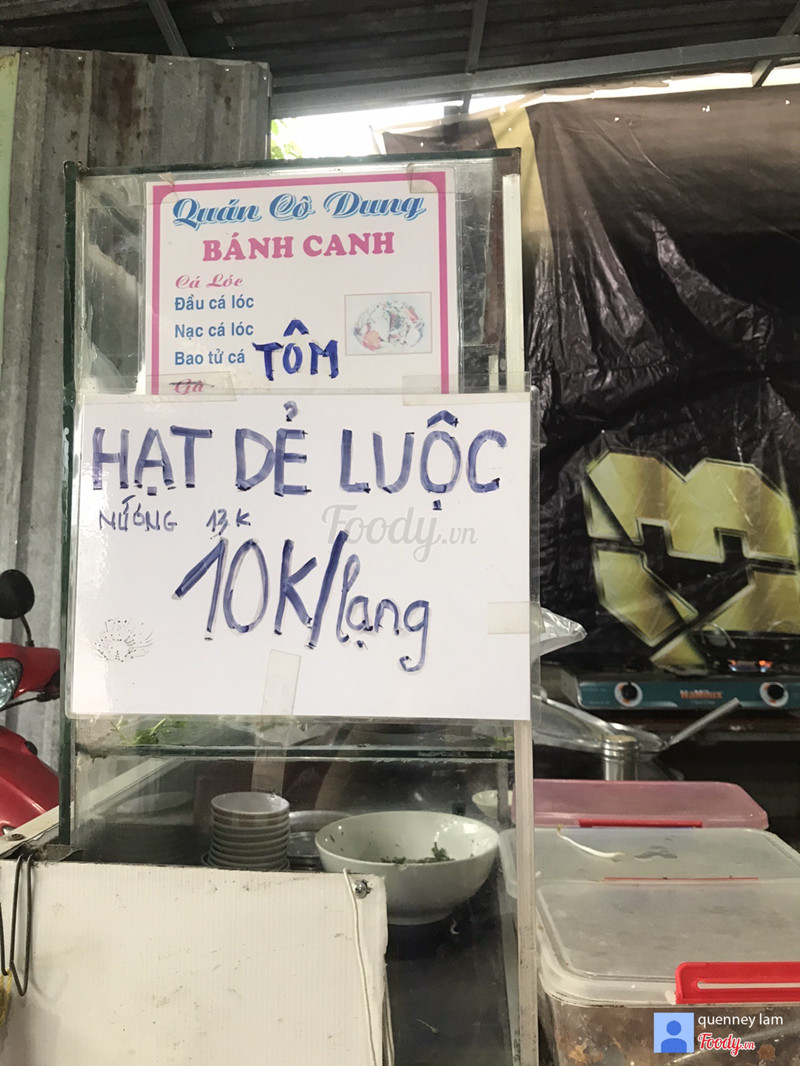 Quán Cô Dung
BÁNH CANH
Cá Lóc
Đầu cá lóc
Nạc cá lóc
Bao tử cá TÔM
Gà
HẠT DẺ LUỘC
NƯỚNG 13K
10K/lạng
Foody.vn
HaMilux
quenney lam
Foody.vn